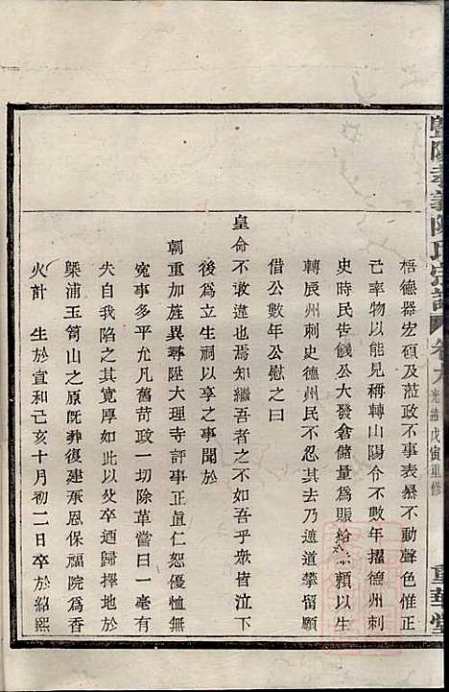 暨陽孝義陳氏宗譜 卷九 光緒戊寅重修 重華堂
梧德器宏碩及蒞政不事表暴不動聲色惟正
己率物以能見稱轉山陽令不數年擢德州刺
史時民告饑公大發倉儲量爲賑給 賴以生
轉辰州刺史德州民不忍其去乃遮道攀留願
借公數年公慰之曰
皇命不敢違也焉知繼吾者之不如吾乎衆皆泣下
後爲立生祠以享之事聞於
朝重加旌異尋陞大理寺評事正眞仁恕優恤無
寃事多平允凡舊苛政一切除革當曰一毫有
失自我陷之其寬厚如此致卒逋歸擇地於
槩浦玉笥山之原旣葬復建承恩保福院爲香
火計 生於宣和己亥十月初二日卒於紹熙